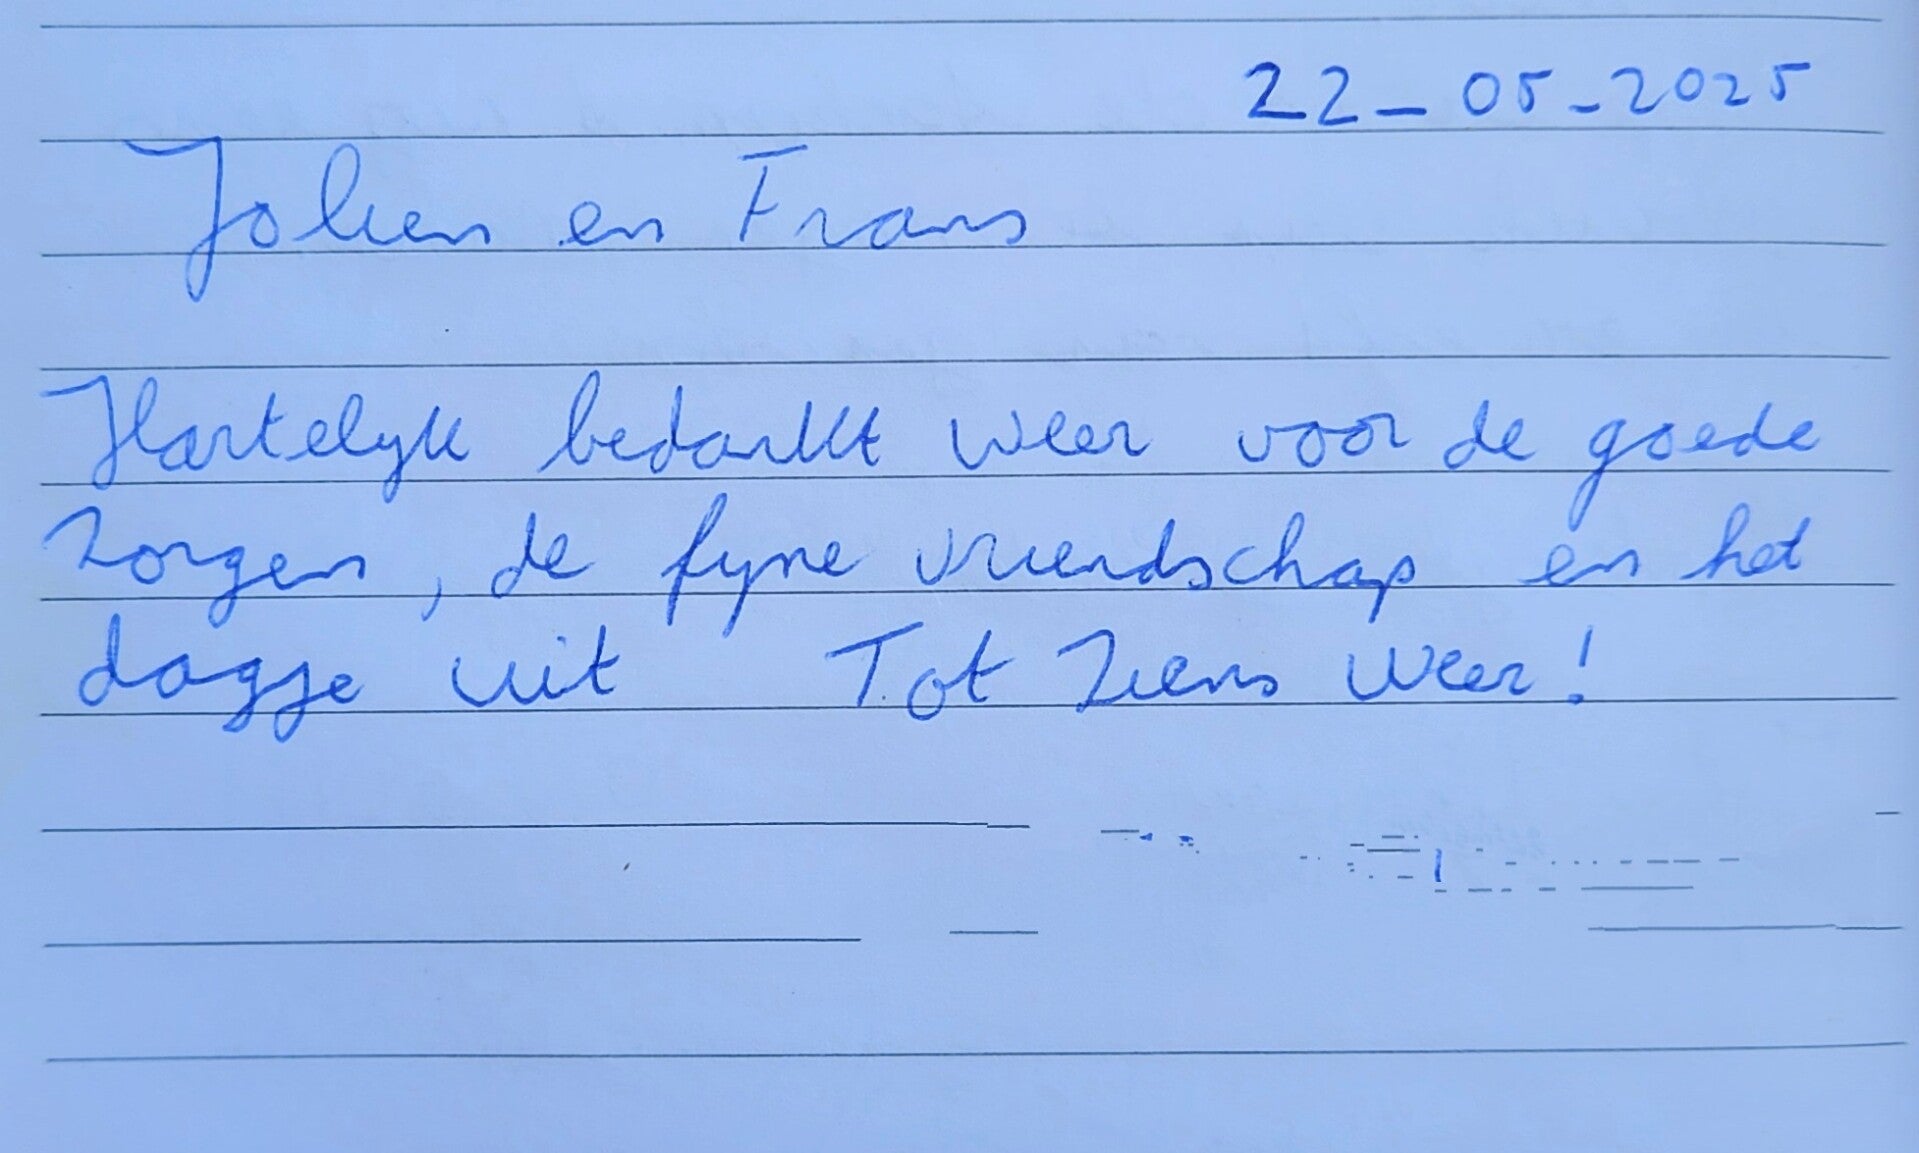 22-05-2025
Jolien en Frans
Hartelyk bedankt weer voor de goede
zorgen, de fyne vriendschap en het
dagje uit Tot Ziens weer!